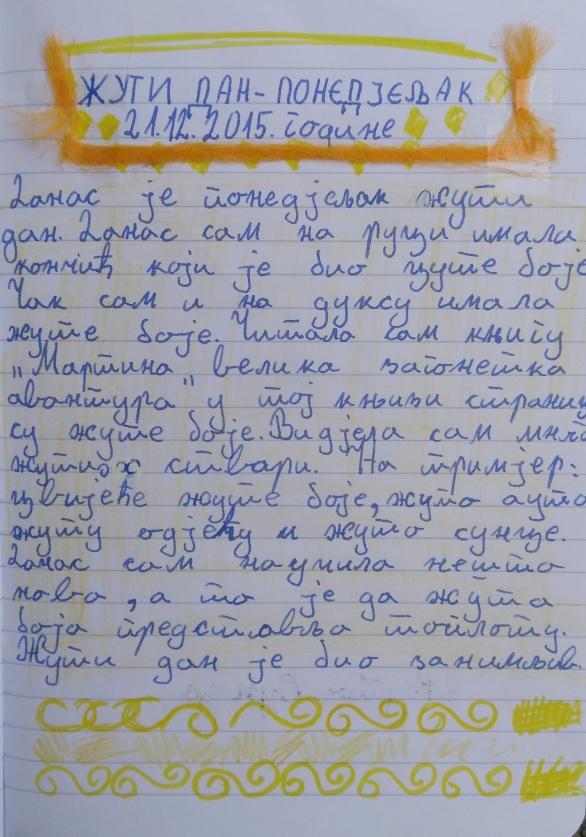 ЖУТИ ДАН-ПОНЕДЈЕЉАК
21.12.2015. године
Данас је понедјељак жути
дан. Данас сам на руци имала
кончић који је био жуте боје
Чак сам и на дуксу имала
жуте боје. Читала сам књигу
„Мартина" велика загонетка
авантура" у тој књизи страниц
су жуте боје. Видјела сам много
жутих ствари. На примјер:
цвијеће жуте боје, жуто ауто
жуту одјећу и жуто сунце.
Данас сам научила нешто
ново, а то је да жута
боја представља топлоту.
Жути дан је био занимљив.